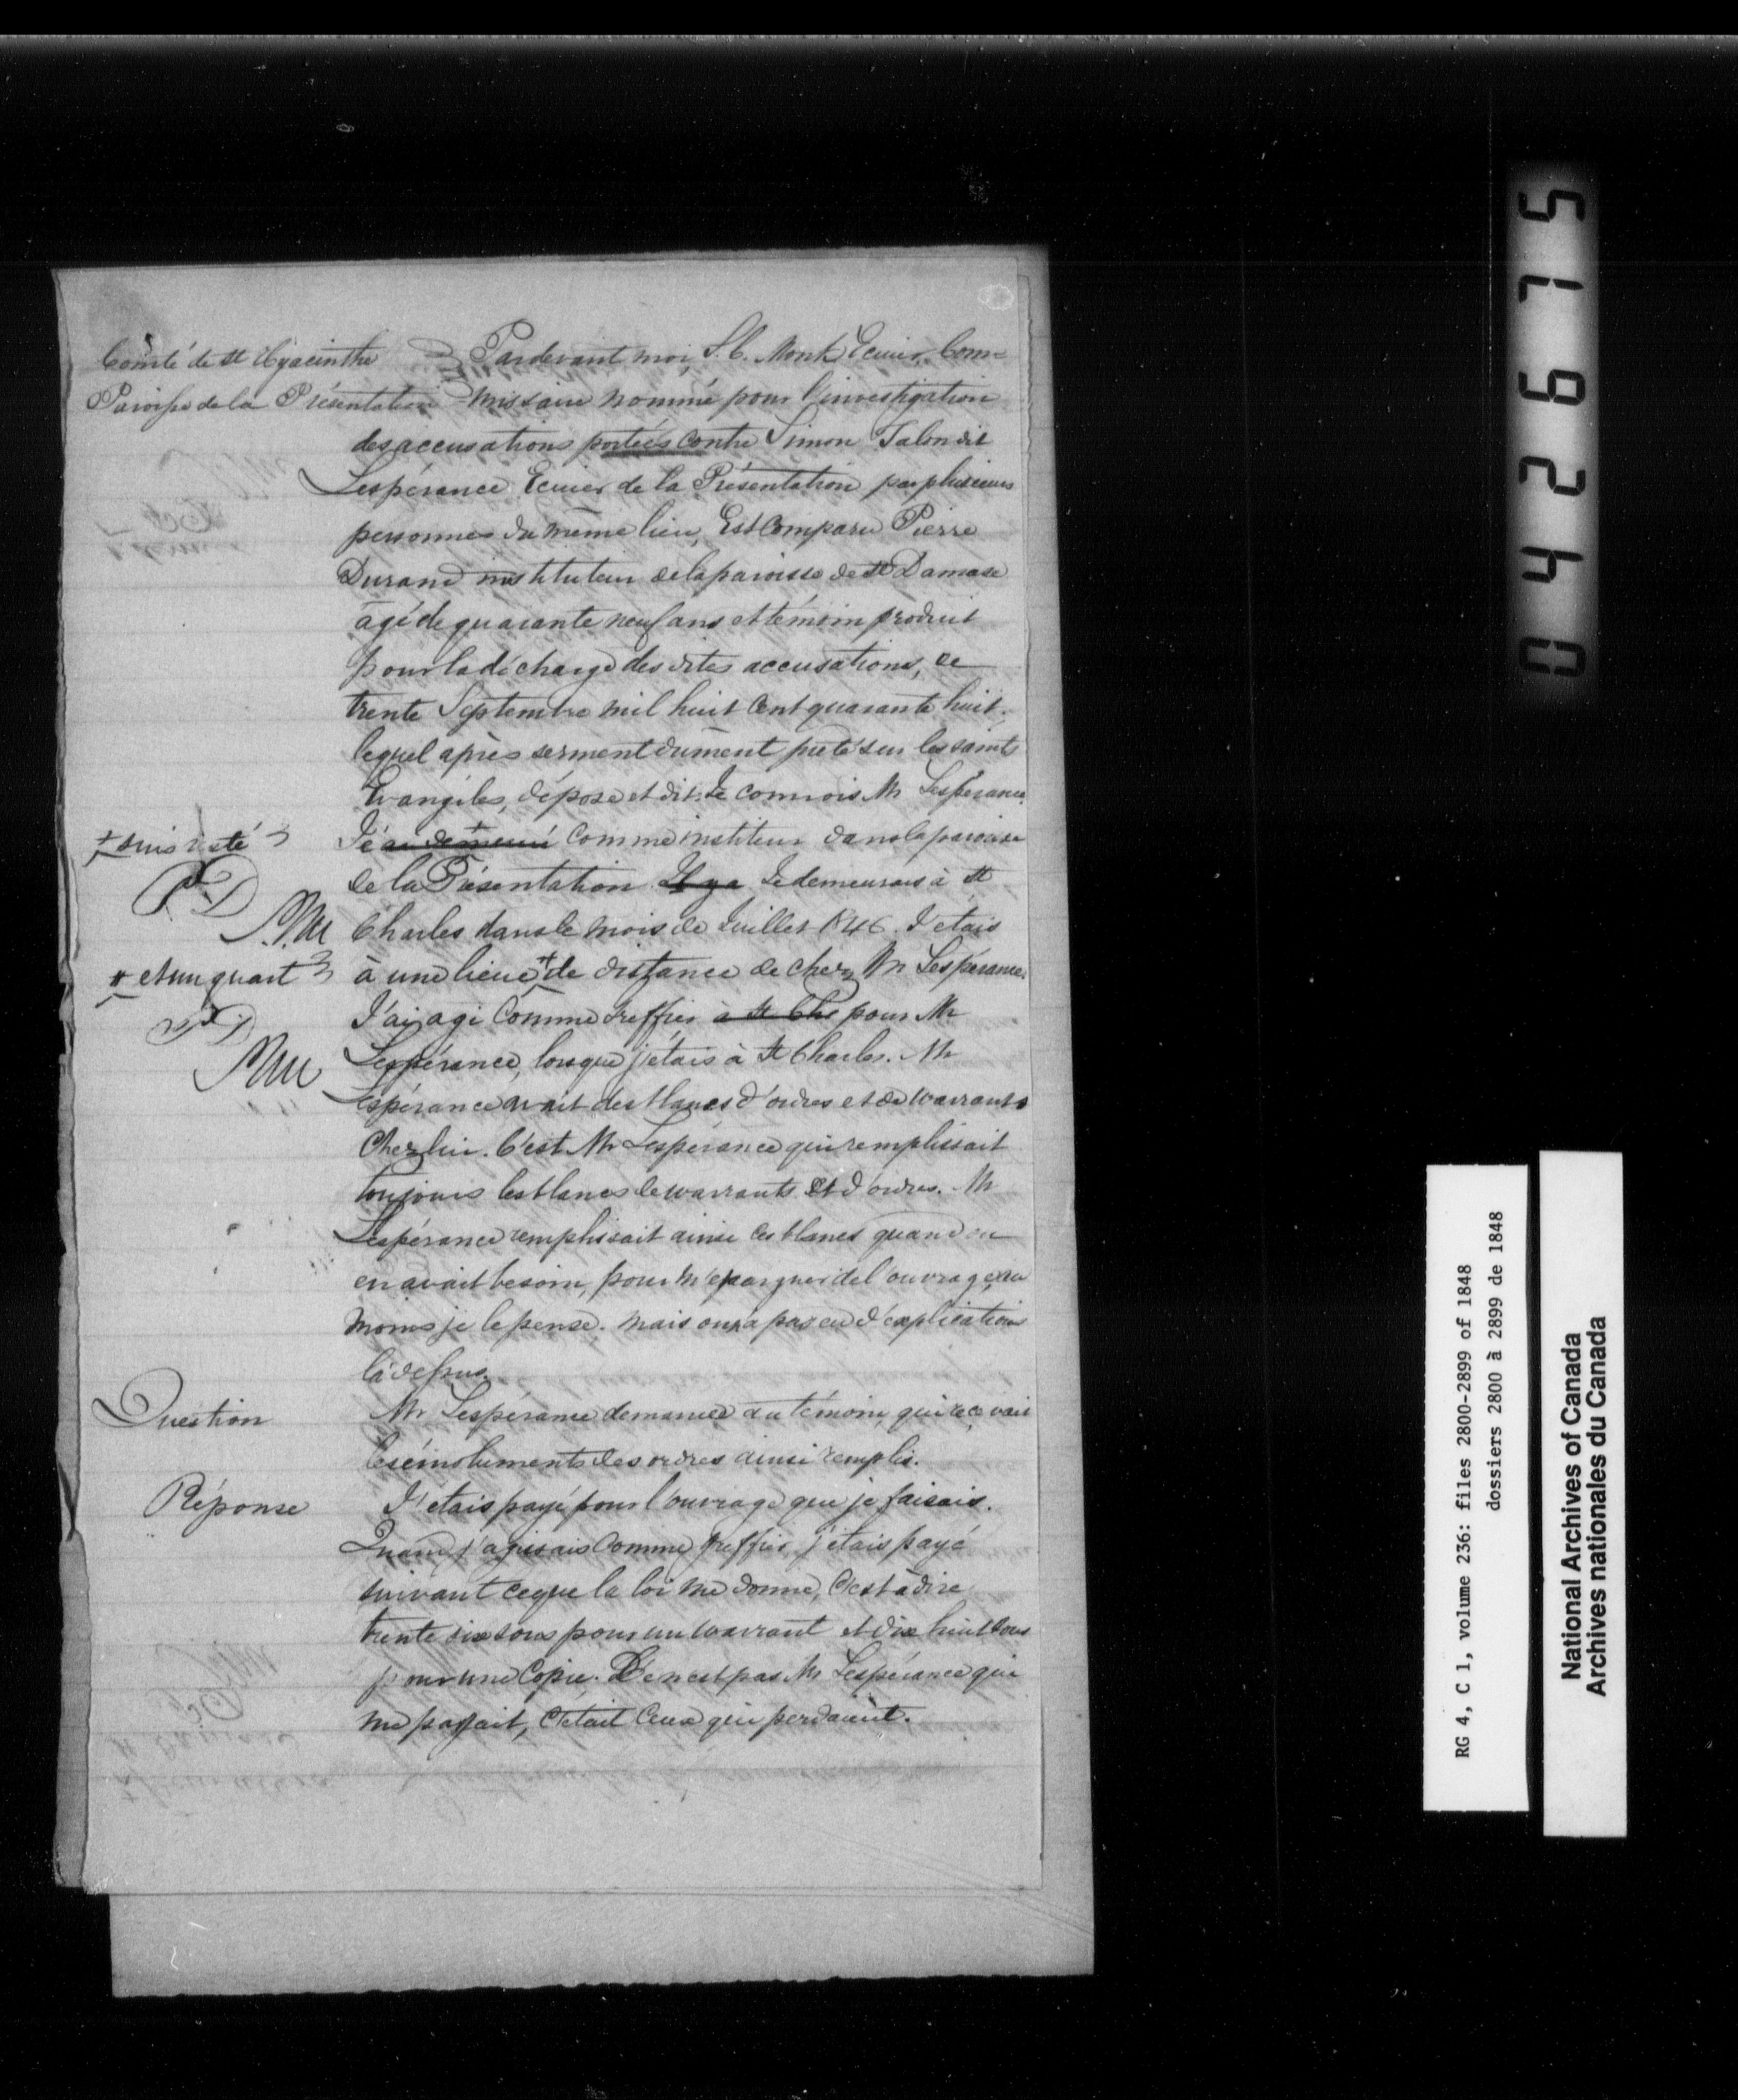 Comté de St Hyacinthe
Paroisse de la Présentation
Pardevant moi, S. C. Monk Ecuier, Com=
missaire nommé pour l'investigation
des accusations portées contre Simon Talon dit
Lespérance Ecuier de la Présentation par plusieurs
personnes du même lieu, Est Comparu Pierre
Durand instituteur de la paroisse de St Damase
agé de quarante neuf ans et témoin produit
pour la décharge des dites accusations, ce
trente Septembre mil huit Cent quarante huit.
lequel après serment dument preté sur les saints
Evangiles, dépose et dit: Je connois Mr Lespérance.
+ suis resté
Je ai demeuré + comme institeur dans la paroisse
PD
de la Présentation Il y a Je demeurais à St
Charles dans le mois de Juillet 1846. J'etais
# et un quart
à une lieue # de distance de chez Mr Lespérance.
PD
J'ai agi Comme Greffier à St Chs pour Mr
Lespérance, lorsque j'étais à St Charles. Mr
Lespérance avait des blancs d'ordres et de warrants
Chez lui. C'est Mr Lespérance qui remplissait
toujours les blancs de warrants et d'ordres. Mr
Lespérance remplissait ainsi ces blancs quand on
en avait besoin, pour m'epargner de l'ouvrage, au
moins je le pense. mais on n'a pas eu d'explications
là dessus.
Question
Mr Lespérance demande au témoin, qui recevait
les émoluments des ordres ainsi remplis.
Réponse
J'étais payé pour l'ouvrage que je faisais.
Quand j'agissais Comme greffier, j'étais payé
suivant ce que la loi me donne, C'est à dire
trente six sous pour un warrant et dix huit sous
pour une Copie. Ce n'est pas Mr Lespérance qui
me payait, C'était Ceux qui perdaient.
042675
RG 4, C 1, volume 236: files 2800-2899 of 1848
dossiers 2800 à 2899 de 1848
National Archives of Canada
Archives nationales du Canada